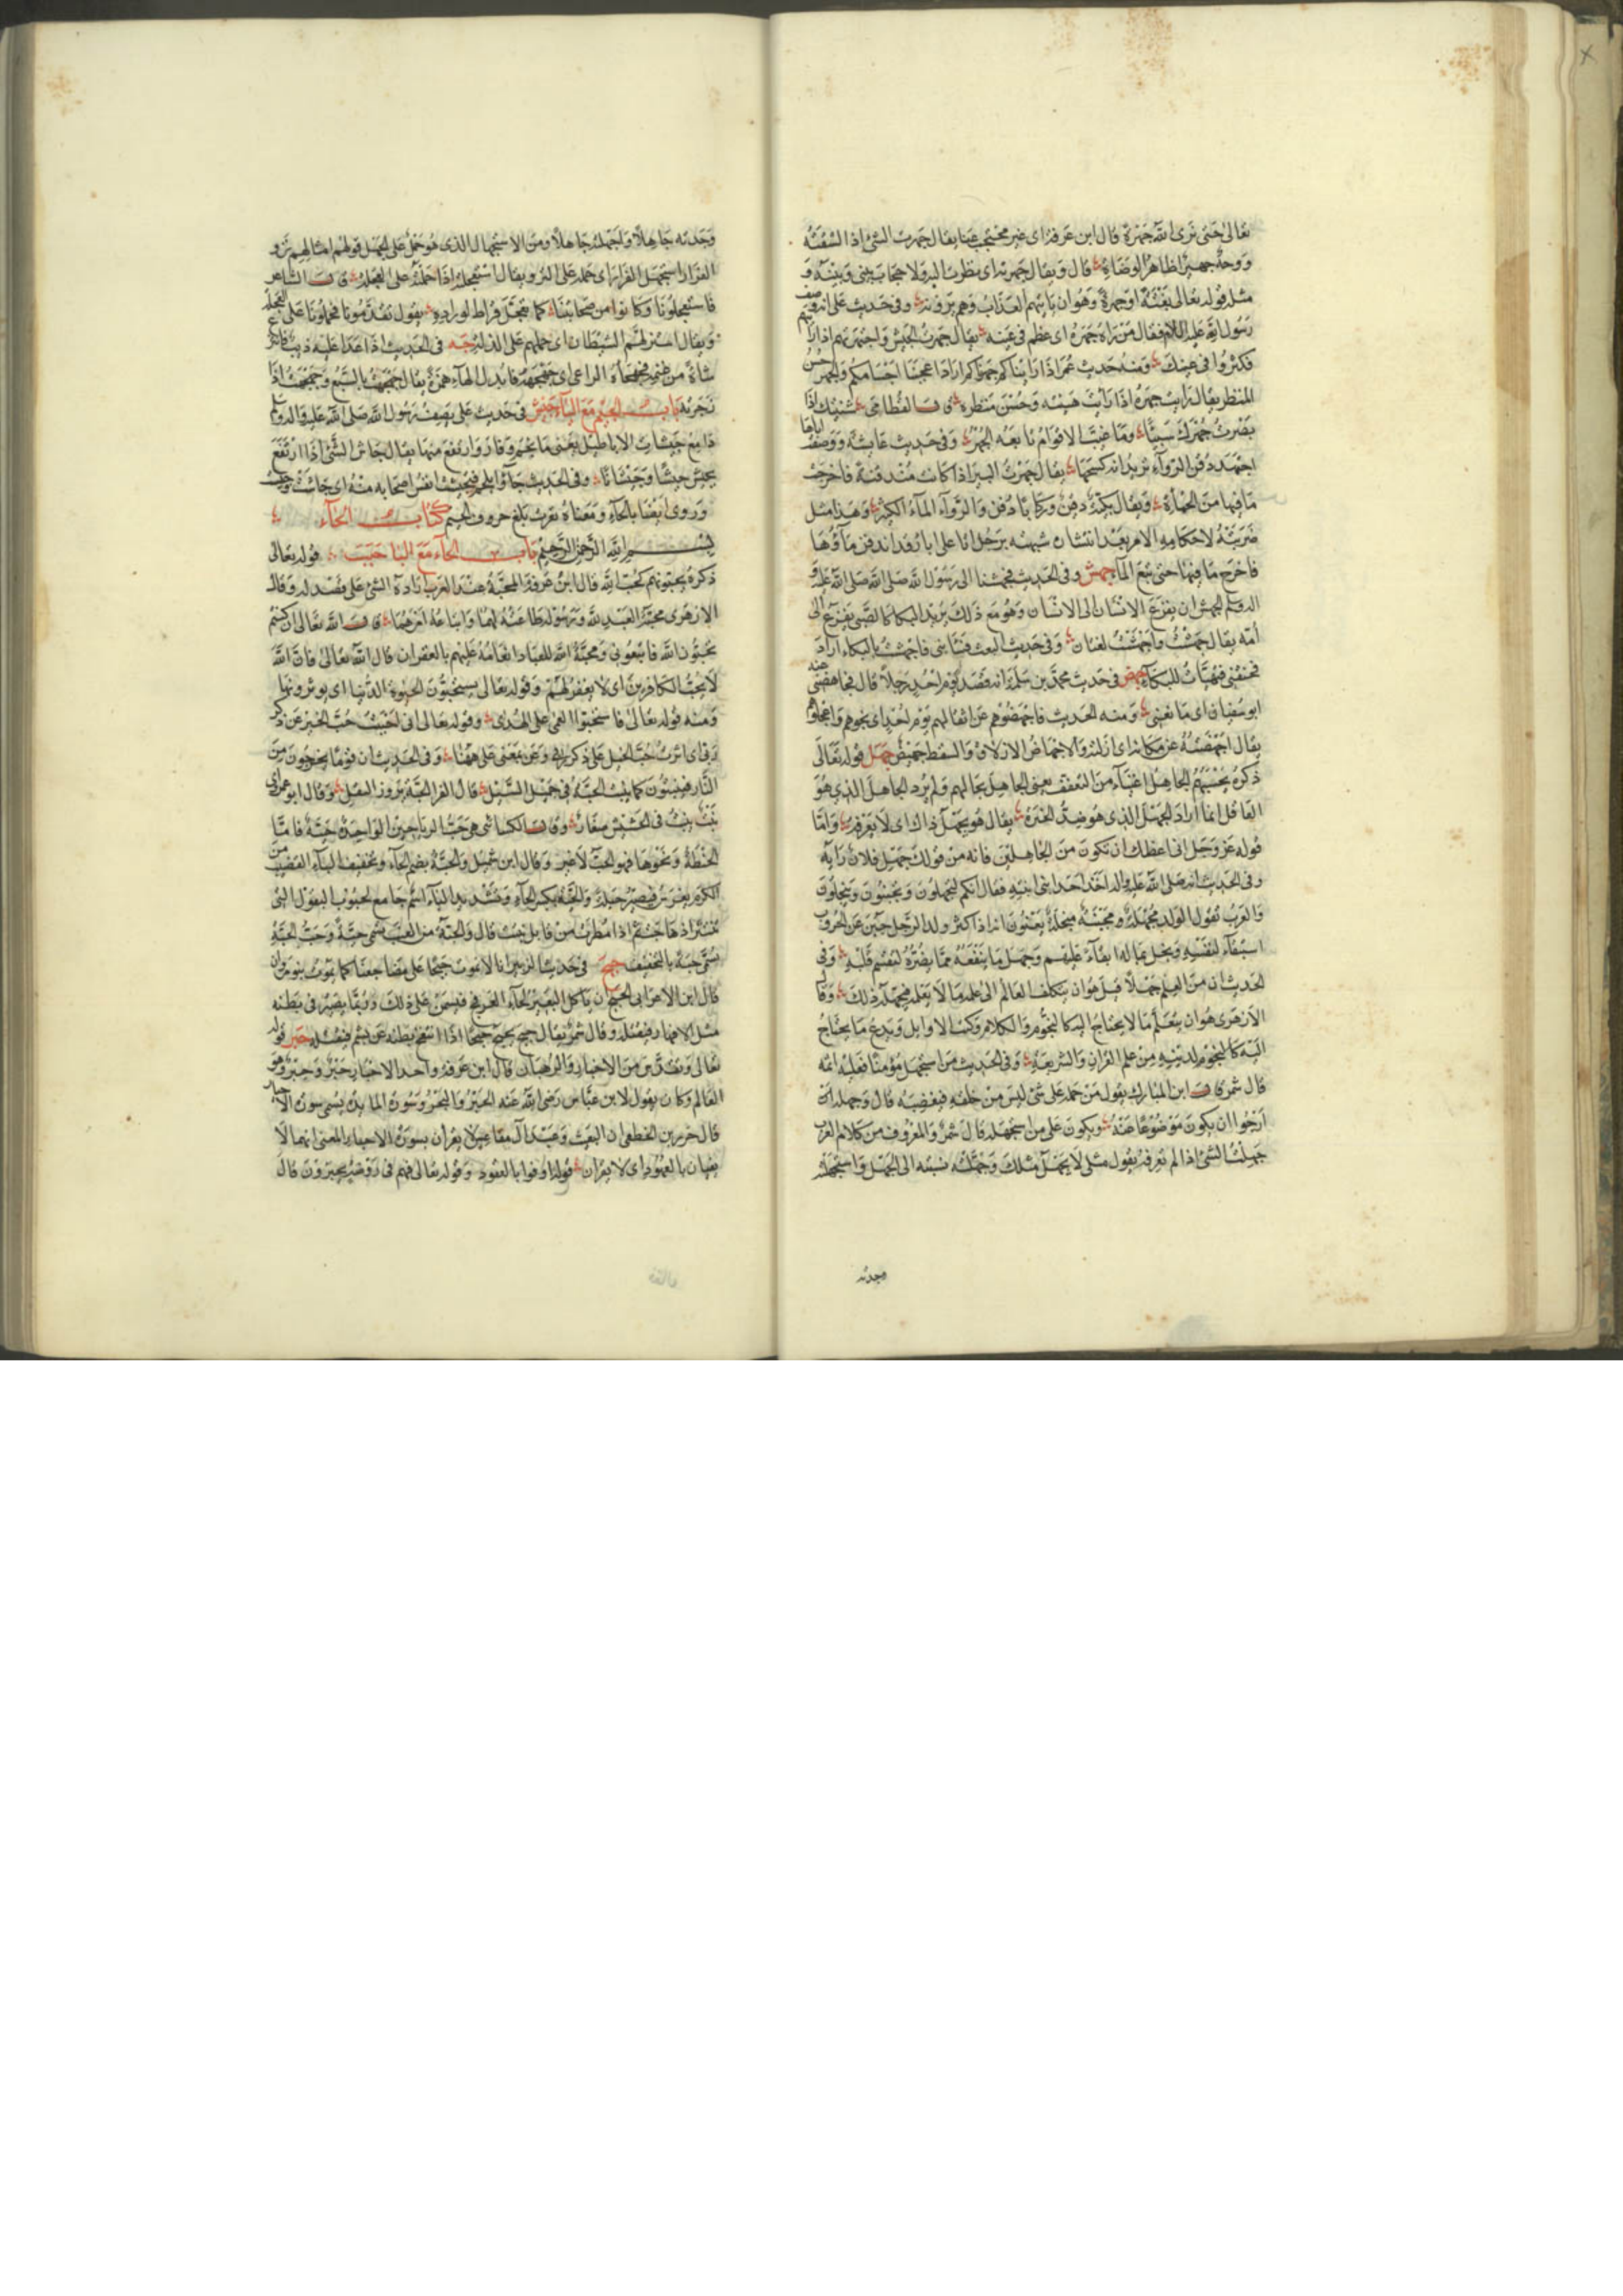 تعالى حتى نرى الله جهرة قال ابن عرفة اى غير محتجب عنا يقال جهرت الشئ اذا كشفته
ووجه جهير اظاهر الوضاة قال ويقال جهرته اى نظرت اليه ولا حجاب بينى وبينه و
مثله قوله تعالى بغتة او جهرة وهو ان ياتيهم العذاب وهم يرونه وفى حديث على انه وصف
رسول الله عليه السلام فقال من رآه جهره اى عظم فى عينه يقال جهرت الجيش واجتهرتهم اذا رايتهم
فكثروا فى عينك ومنه حديث عمر اذا رايناكم جهرناكم اراد اعجبنا اجسامكم والجهر حسن
المنظر يقال رايت جهره اذا رايت هيئته وحسن منظره قال القطامى شنئتك اذ
ابصرت جهرك سيئا وما غيب الاقوام تابعة الجهر وفى حديث عايشة ووصفت اباها
اجتهر دفن الرواء تريد انه كسحها يقال جهرت البير اذا كانت مندفنة فاخرجت
ما فيها من الحمأة ويقال بير دفن وركايا دفن والرواء الماء الكثير وهذا مثل
ضربته لاحكامه الامر بعد انتشاره شبهته برجل اتى على ابار قد اندفن ماؤها
فاخرج ما فيها حتى نبع الماء جهش وفى الحديث فجهشنا الى رسول الله صلى الله عليه و
اله وسلم الجهش ان يفزع الانسان الى الانسان وهو مع ذلك يريد البكا كالصبى يفزع الى
امه يقال جهشت واجهشت لغتان وفى حديث البعث فسابنى فاجهشت بالبكاء اراد
فخنقنى فتهيات للبكاء جهض فى حديث محمد بن مسلمة انه قصد يوم احد رجلا قال فجاهضنى عنه
ابو سفيان اى ما نعنى ومنه الحديث فاجهضوهم عن اثقالهم يوم احد اى نحوهم واعجلوهم
يقال اجهضته عن مكانه اى ازلته والاجهاض الازلاق والسقط جهيض جهل قوله تعالى
ذكره يحسبهم الجاهل اغنياء من التعفف يعنى الجاهل بحالهم ولم يرد الجاهل الذى هو
العاقل انما اراد الجهل الذى هو ضد الخبرة يقال هو يجهل ذاك اى لا يعرفه واما
قوله عز وجل انى اعظك ان تكون من الجاهلين فانه من قولك جهل فلان رايه
وفى الحديث انه صلى الله عليه واله اخذ احد ابنى ابنته فقال انكم لتجهلون وتجبنون وتبخلون
والعرب تقول الولد مجهلة ومجبنة مبخلة يعنون انه اذا كثر ولد الرجل جبن عن الحروب
استبقاء لنفسه وبخل بماله ابقاء عليهم وجهل ما ينفعه مما يضره لتقسم قلبه وفى
الحديث ان من العلم جهلا قيل هو ان يتكلف العالم الى علمه ما لا يعلمه فيجهله ذلك وقال
الازهرى هو ان يتعلم ما لا يحتاج اليه كالنجوم والكلام وكتب الاوايل ويدع ما يحتاج
اليه كالنجوم لدينه من علم القران والشريعة وفى الحديث من استجهل مؤمنا فعليه اثمه
قال شمر قال ابن المبارك يقول من حمله على شئ ليس من خلقه فيغضبه قال وجهله ان
ارجوا ان يكون موضوعا عنه ويكون على من استجهله قال شمر والمعروف من كلام العرب
جهلت الشئ اذا لم تعرفه تقول مثلى لا يجهل مثلك وجهلته نسبته الى الجهل واستجهلته
وجدته
وجدته جاهلا واجهلته جاهلا ومن الاستجهال الذى هو حمل على الجهل قولهم امثالهم نزو
الفرار استجهل الفرار اى حمله على النزو يقال استعجلته اذا حملته على العجلة قال الشاعر
فاستعجلونا وكانوا من صحابتنا كما تعجل فراط لوراد يقول تقدمونا فحملونا على العجلة
ويقال استزلهم الشيطان اى حملهم على الذلة جهه فى الحديث اذا عدا عليه ذيب فانتزع
شاة من غنمه فجهجأه الراعى اى جهجهه فابدل الهاء همزة يقال جهجهت بالسبع وجهجهت اذا
زجرته باب الجيم مع الياء جيش فى حديث على يصف رسول الله صلى الله عليه واله وسلم
دامغ جيشات الاباطيل يعنى ما نجم وفار وارتفع منها يقال جاش الشئ اذا ارتفع
يجيش جيشا وجيشانا وفى الحديث جاؤا بلحم فتجيشت انفس اصحابه منه اى جاشت وخبثت
وروى ايضا بالحاء ومعناه نفرت بلغ حروف الجيم كتاب الحاء
بسم الله الرحمن الرحيم باب الحاء مع البا حبب قوله تعالى
ذكره يحبونهم كحب الله قال ابن عرفة المحبة عند العرب ارادة الشئ على قصد له وقال
الازهرى محبة العبد لله ورسوله طاعته لهما واتباعه امرهما قال الله تعالى ان كنتم
تحبون الله فاتبعونى ومحبة الله للعباد انعامه عليهم بالغفران قال الله تعالى فان الله
لا يحب الكافرين اى لا يغفر لهم وقوله تعالى يستحبون الحيوة الدنيا اى يوثرونها
ومنه قوله تعالى فاستحبوا العمى على الهدى وقوله تعالى انى احببت حب الخير عن ذكر
ربى اى اثرت حب الخيل على ذكر ربى وعن بمعنى على ههنا وفى الحديث ان قوما يخرجون من
النار فينبتون كما ينبت الحبة فى حميل السيل قال الفرا الحبة بزور البقل وقال ابو عمرو
نبت ينبت فى الحشيش صغار وقال الكسائى هى حب الرياحين الواحدة حبة فاما
الحنطة ونحوها فهو الحب لا غير وقال ابن شميل والحبة بضم الحاء وتخفيف الباء القضيب من
الكرم يغرس فيصير حبلة والحبة بكسر الحاء وتشديد الباء اسم جامع لحبوب البقول التى
تنتثر اذ هاجت ثم اذا مطرت من قابل نبتت قال والحبة من العنب تسمى حبة وحب الحبة
تسمى حبة بالتخفيف حبج فى حديث الزبير انا لا نموت حبجا على مضاجعنا كما يموت بنو مروان
قال ابن الاعرابى الحبج ان ياكل البعير لحاء العرفج فيسمن على ذلك وربما يصير فى بطنه
مثل الافهار فيقتله وقال شمر يقال حبج يحبج حبجا اذا انتفخ بطنه عن بشم فيقتله حبر قوله
تعالى من الاحبار والرهبان قال ابن عرفة واحد الاحبار حبر وحبر وهو
العالم وكان يقول لابن عباس رضى الله عنه الحبر والبحر وسورة المايدة يسمى سورة الاحبار
قال جرير بن الخطفى ان البعيث وعبد آل مقاعس لا يقران بسورة الاحبار المعنى انهما لا
يفيان بالعهود اى لا يقران قوله اوفوا بالعقود وقوله تعالى فهم فى روضة يحبرون قال